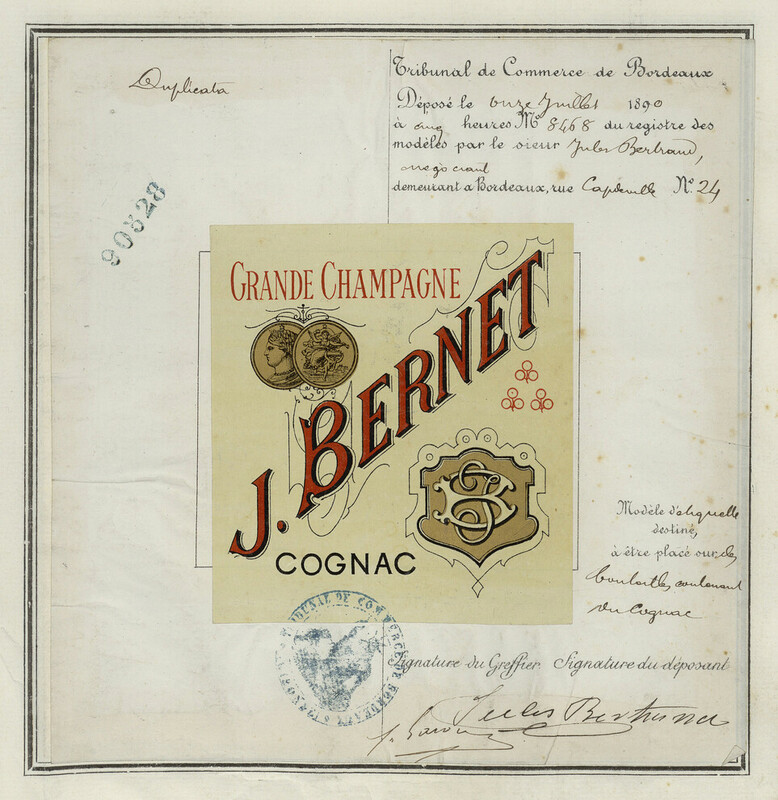 Duplicata
Tribunal de Commerce de Bordeaux
Déposé le onze Juillet 1890
à cinq heures No 8468 du registre des
modèles par le sieur Jules Bertrand,
négociant
demeurant à Bordeaux, rue Capdeville No. 24
90828
GRANDE CHAMPAGNE
J. BERNET
COGNAC
JB
Modèle d'étiquette
destiné,
à être placé sur des
bouteilles contenant
du Cognac
TRIBUNAL DE COMMERCE DE BORDEAUX
Signature du Greffier Signature du déposant
Jules Bertrand